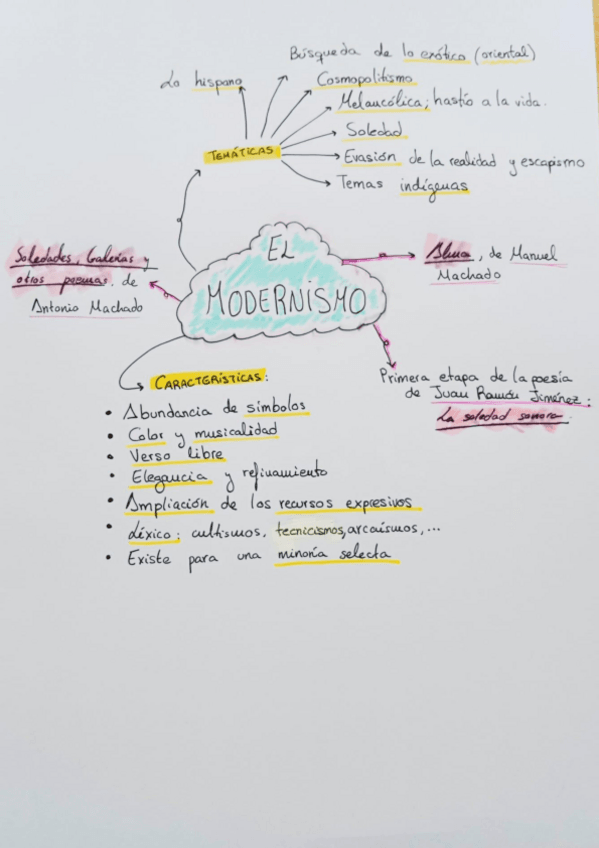 Búsqueda de lo exótico (oriental)
Lo hispano
Cosmopolitismo
Melancólica; hastío a la vida.
Soledad
TEMÁTICAS
Evasión de la realidad y escapismo
Temas indígenas
EL
MODERNISMO
Soledades, Galerías y
otros poemas, de
Antonio Machado
Alma, de Manuel
Machado
Primera etapa de la poesía
de Juan Ramón Jiménez:
La soledad sonora.
CARACTERÍSTICAS:
• Abundancia de símbolos
• Color y musicalidad
• Verso libre
• Elegancia y refinamiento
• Ampliación de los recursos expresivos
• Léxico: cultismos, tecnicismos, arcaísmos, ...
• Existe para una minoría selecta